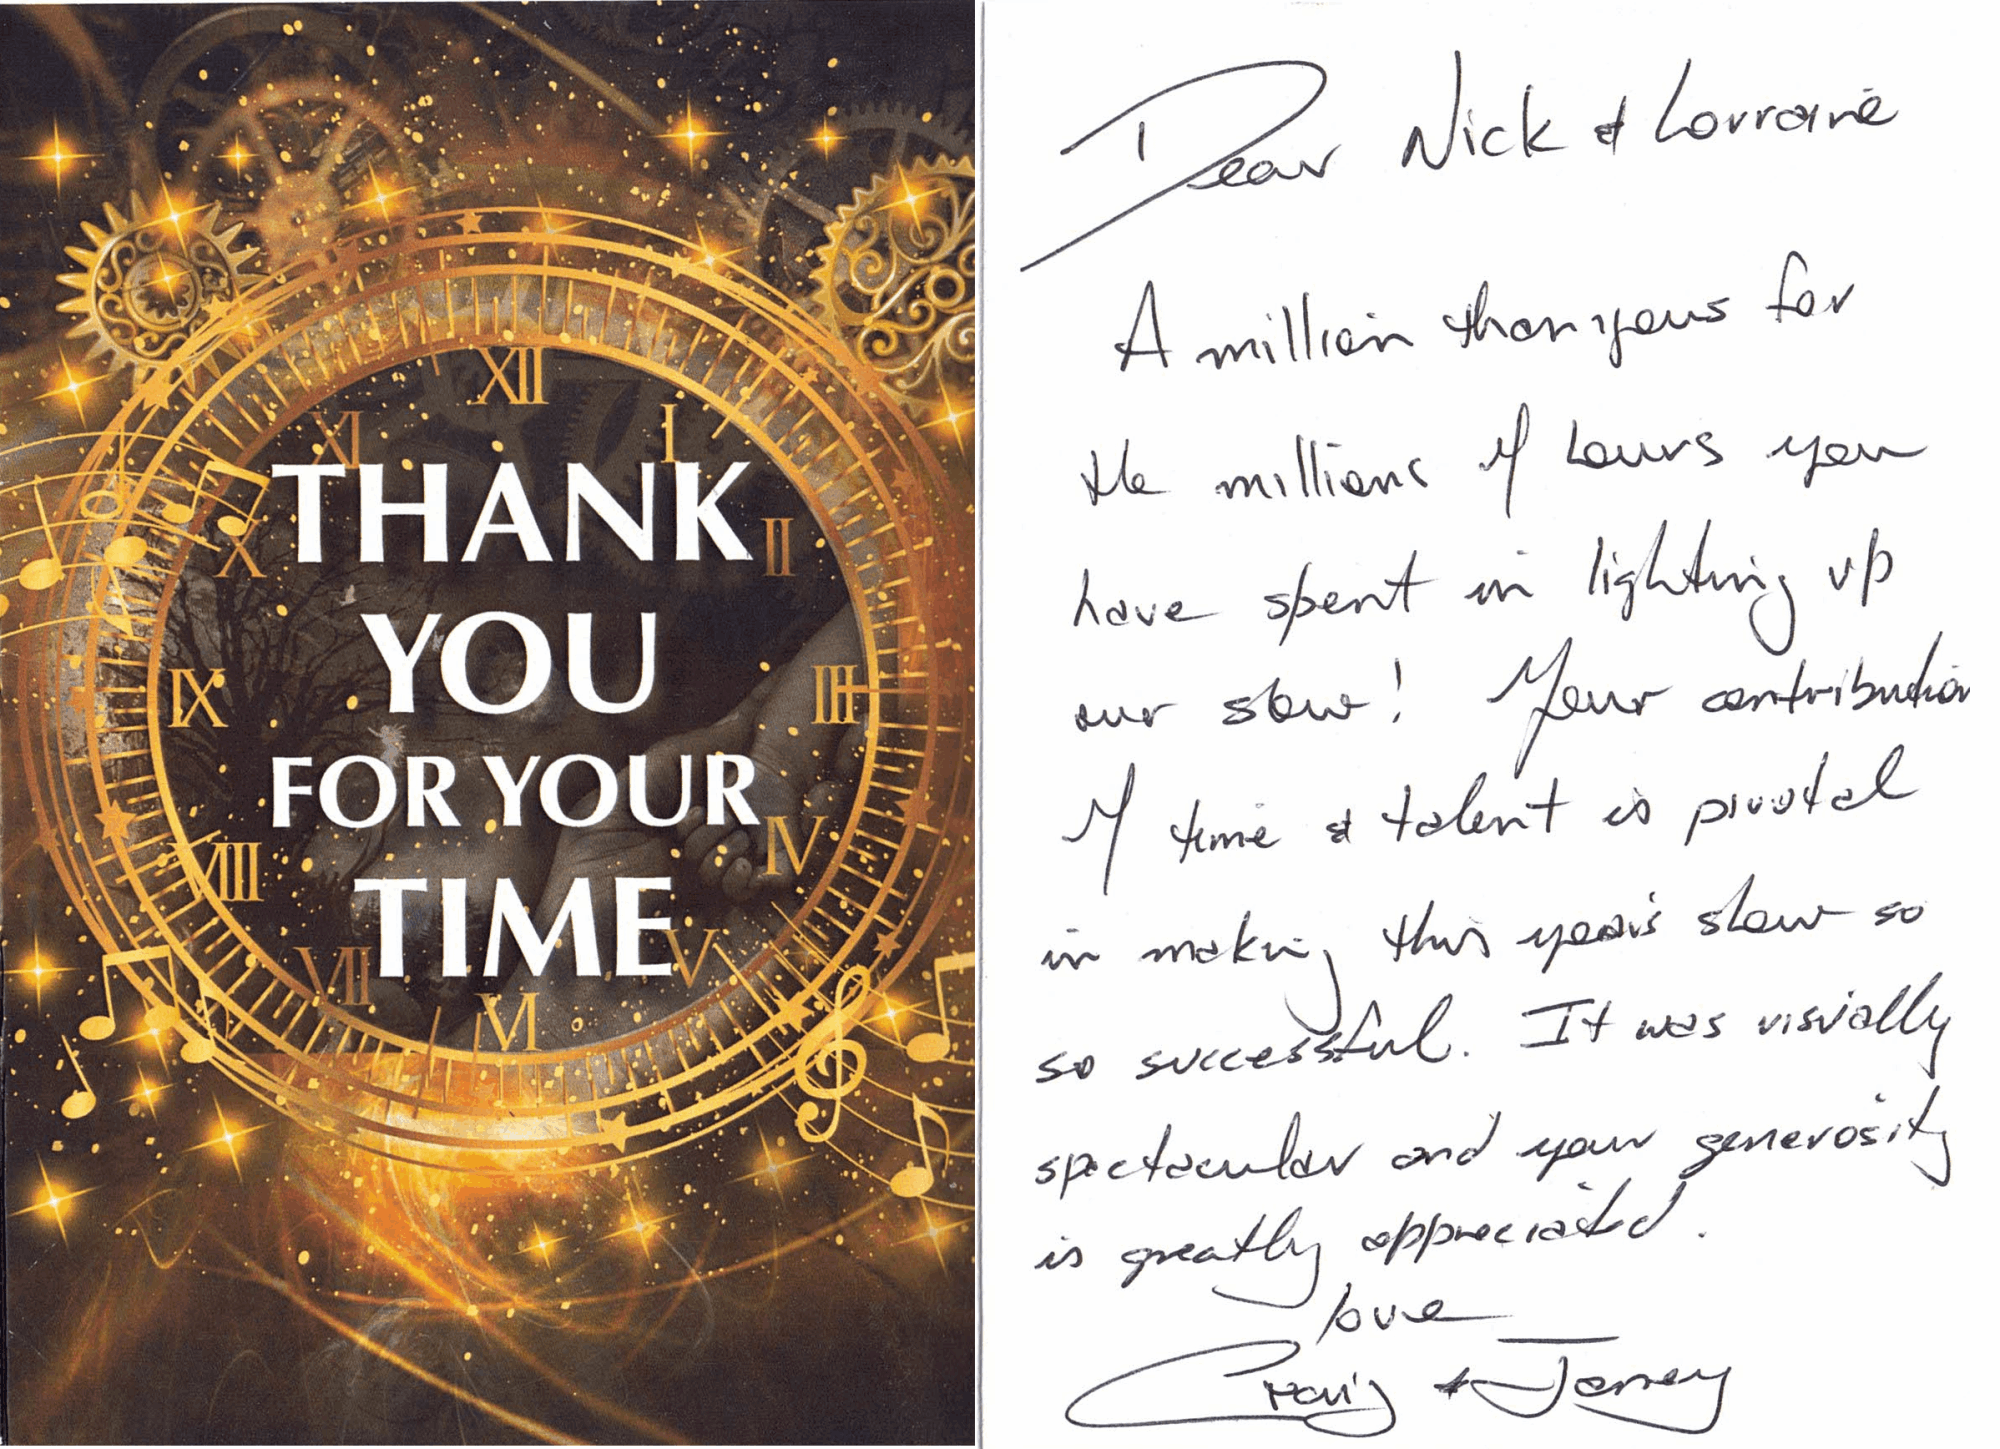 XII
XI
I
THANK
X
II
YOU
IX
III
FOR YOUR
VIII
IV
TIME
VII
V
VI
Dear Nick & Lorraine
A million thankyous for
the millions of hours you
have spent in lighting up
our show! Your contribution
of time & talent is pivotal
in making this year's show so
so successful. It was visually
spectacular and your generosity
is greatly appreciated.
love
Craig &